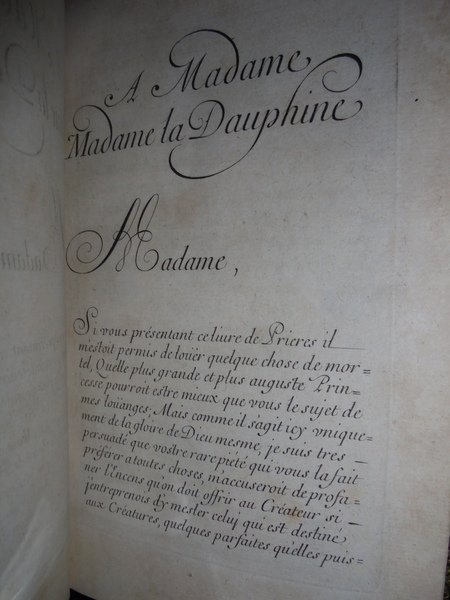 A Madame
Madame la Dauphine
Madame,
Si vous présentant ce livre de Prieres il
m'estoit permis de loüer quelque chose de mor=
tel, Quelle plus grande et plus auguste Prin=
cesse pourroit estre mieux que vous le sujet de
mes loüanges; Mais comme il s'agit icy vnique=
ment de la gloire de Dieu mesme, je suis tres
persuadé que vostre rare piété qui vous la fait
préférer a toutes choses, m'accuseroit de profa=
ner l'Encens qu'on doit offrir au Créateur si
j'entreprenois d'y mesler celuj qui est destiné
aux Créatures, quelques parfaites qu'elles puis=